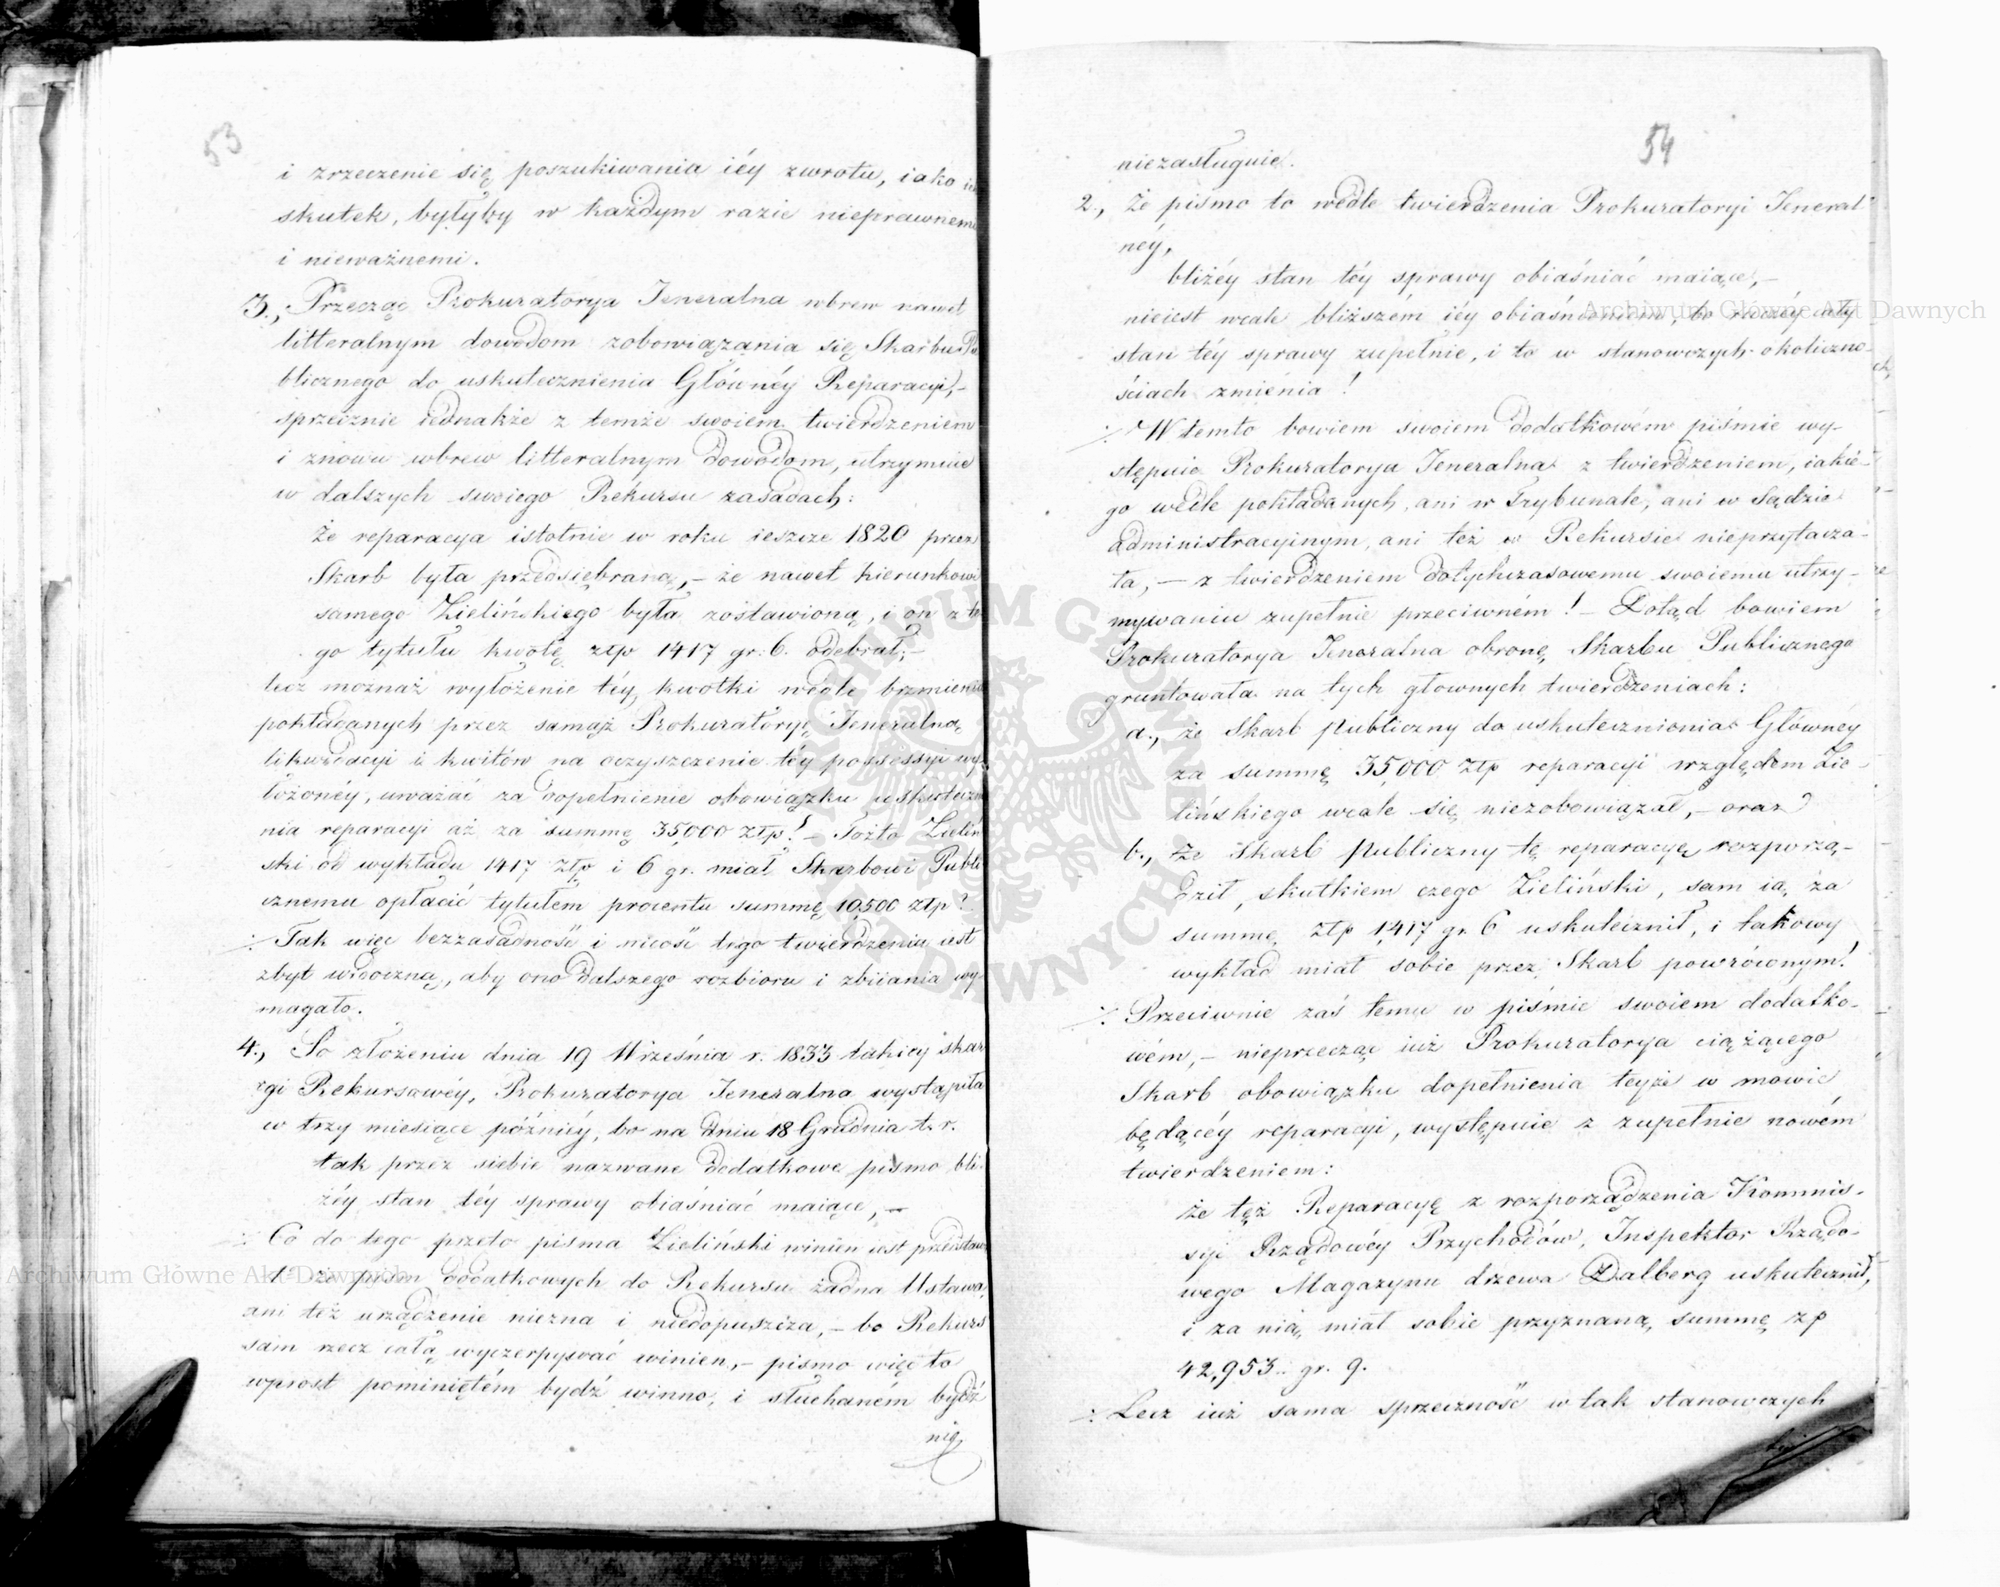 53
i zrzeczenie się poszukiwania iéy zwrotu, iako
skutek, byłyby w każdym razie nieprawnemi
i nieważnemi.
3., Przecząc Prokuratorya Jeneralna wbrew nawet
litteralnym dowodom zobowiązania się Skarbu Pu
blicznego do uskutecznienia Głównéy Reparacyi,-
sprzecznie iednakże z temże swoiem twierdzeniem
i znowu wbrew litteralnym dowodom, utrzymuie
w dalszych swoiego Rekursu zasadach:
że reparacya istotnie w roku ieszcze 1820 przez
Skarb była przedsiębraną, - że nawet kierunkowi
samego Zielińskiego była zostawioną, i on z te
go tytułu kwotę złp 1417 gr. 6. odebrał;-
lecz możnaż wyłożenie téy kwotki wedle brzmienia
pokładanych przez samąż Prokuratoryę Jeneralną
likwidacyi i kwitów na oczyszczenie téy possessyi wy
łożonéy, uważać za dopełnienie obowiązku uskuteczn
nia reparacyi aż za summę 35,000 złp! - Tożto Zieliń
ski od wykładu 1417 złp i 6 gr. miał Skarbowi Publi
cznemu opłacić tytułem procentu summę 10,500 złp?
Tak więc bezzasadność i nicość tego twierdzenia iest
zbyt widoczną, aby ono dalszego rozbioru i zbiiania wy-
magało.
4., Po złożeniu dnia 19 Września r. 1833 takiey skar
gi Rekursowéy, Prokuratorya Jeneralna wystąpiła
w trzy miesiące późniéy, bo na dniu 18 Grudnia t. r.
tak przez siebie nazwane dodatkowe pismo bli-
żéy stan téy sprawy obiaśniać maiące, -
Co do tego przeto pisma Zieliński winien iest przedstaw
1. że pism dodatkowych do Rekursu żadna Ustawa,
ani też urządzenie niezna i niedopuszcza, - bo Rekurs
sam rzecz całą wyczerpywać winien, - pismo więc to
wprost pominiętém bydź winno, i słuchaném bydź
nie
54
niezasługuie.
2., Że pismo to wedle twierdzenia Prokuratoryi Jeneral
néy,
bliżéy stan téy sprawy obiaśniać maiące, -
nieiest wcale bliższém iéy obiaśnieniem, bo raczéy cały
stan téy sprawy zupełnie, i to w stanowczych okoliczno-
ściach zmienia!
W temto bowiem swoiem dodatkowém piśmie wy-
stępuie Prokuratorya Jeneralna z twierdzeniem, iakie-
go wedle pokładanych, ani w Trybunale, ani w Sądzie
Administracyinym, ani też w Rekursie nieprzytacza-
ła, - z twierdzeniem dotychczasowemu swoiemu utrzy-
mywaniu zupełnie przeciwném! - Dotąd bowiem
Prokuratorya Jeneralna obronę Skarbu Publicznego
gruntowała na tych głownych twierdzeniach:
a., że Skarb Publiczny do uskutecznienia Głównéy
za summę 35,000 złp reparacyi względem Zie-
lińskiego wcale się niezobowiązał, - oraz
b., Że Skarb Publiczny tę reparacyę rozporzą-
dził, skutkiem czego Zieliński, sam ią za
summę złp 1,417 gr 6 uskutecznił, i takowy
wykład miał sobie przez Skarb powróconym!
Przeciwnie zaś temu w piśmie swoiem dodatko-
wém, - nieprzecząc iuż Prokuratorya ciążącego
Skarb obowiązku dopełnienia teyże w mowie
będącéy reparacyi, występuie z zupełnie nowém
twierdzeniem:
że tęż Reparacyę z rozporządzenia Kommis-
syi Rządowéy Przychodów, Inspektor Rządo-
wego Magazynu drzewa Dalberg uskutecznił,
i za nią miał sobie przyznaną summę zp
42,953.. gr. 9.
Lecz iuż sama sprzeczność w tak stanowczych
Archiwum Główne Akt Dawnych
Archiwum Główne Akt Dawnych
ARCHIWUM GŁÓWNE AKT DAWNYCH